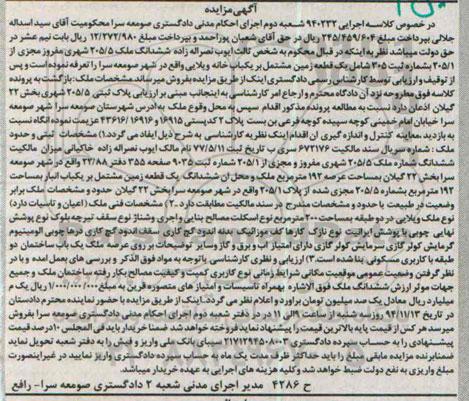 آگهی مزایده
در خصوص کلاسه اجرایی ۹۴۰۲۳۲ شعبه دوم اجرای احکام مدنی دادگستری صومعه سرا محکومیت آقای سید اسداله
جلالی بپرداخت مبلغ ۲۴۵/۴۵۹/۶۰۴ ریال در حق آقای شعبان پوراحمد و بپرداخت مبلغ ۱۲/۲۷۲/۹۸۰ ریال بابت نیم عشر در
حق دولت میباشد نظر به اینکه در قبال محکوم به شخص ثالث ایوب نصراله زاده ششدانگ ملک ۲۰۵/۵ شهری مفروز مجزی از
۲۰۵/۱ بشماره ثبت ۳۰۵ شامل یک قطعه زمین مشتمل بر یکباب خانه ویلایی واقع در شهر صومعه سرا را تعرفه نموده است و پس
از توقیف و ارزیابی توسط کارشناس رسمی دادگستری اینک از طریق مزایده بفروش میرساند مشخصات ملک: بازگشت به پرونده
کلاسه فوق مطروحه نزد آن دادگاه محترم و ارجاع امر کارشناسی به اینجانب مبنی بر ارزیابی پلاک ثبتی ۲۰۵/۵ شهری بخش ۲۲
گیلان اذعان دارد نسبت به مطالعه پرونده مذکور اقدام سپس به محل وقوع ملک به آدرس شهرستان صومعه سرا شهر صومعه
سرا خیابان امام خمینی کوچه سپیده کوچه فرعی بن بست پلاک ۲ کدپستی ۱۶۹۱۵ ۴۳۶۱۶/۱۶۹۱۶ عزیمت نموده آنگاه نسبت
به بازدید، معاینه کنترل و اندازه گیری آن اقدام اینک نظریه کارشناسی به شرح ذیل ایفاد می گردد. ۱) مشخصات ثبتی و حدود
ملک: شماره سریال سند مالکیت ۶۷۲۱۷۶ تاریخ ثبت ۷۷/۵/۱۱ نام مالک ایوب نصراله زاده خاکیانی میزان مالکیت
ششدانگ شماره ملک ۲۰۵/۵ شهری مفروز و مجزی از ۲۰۵/۱ شماره ثبت ۹۰۳۵ صفحه ۳۵۵ دفتر ۲۷/۸۸ واقع در شهر صومعه
سرا بخش ۲۲ گیلان بمساحت عرصه ۱۹۲ مترمربع ملک و محل آن ششدانگ یک قطعه زمین مشتمل بر یکباب انبار بمساحت
۱۹۲ مترمربع بشماره ۲۰۵/۵ مجزی شده از پلاک ۲۰۵/۱ واقع در شهر صومعه سرا بخش ۲۲ گیلان حدود و مشخصات ملک برابر
وضعیت در طبیعت با حدود و مشخصات مندرج در سند مالکیت مطابقت دارد. ۲) مشخصات فنی ملک (اعیان و تاسیسات دارد)
نوع ملک ویلایی در دو طبقه بمساحت ۲۰۰ مترمربع نوع اسکلت مصالح بنایی و اجری وشناژ نوع سقف تیرچه بلوک نوع پوشش
نهایی چوبی با پوشش ایرانیت نوع نازک کارها کف موزائیک بدنه اندود گچ کاری سقف اندود گچ کاری درها چوبی الومینیوم
گرمایش کولر گازی سرمایش کولر گازی دارای امتیاز آب و برق و گاز و سایر توضیحات بر روی عرصه ملک یک باب ساختمان دو
طبقه با کاربری مسکونی بنا شده است. ۳) ارزیابی و نظری کارشناسی با توجه به مواد فوق الذکر و بررسی های بعمل آمده و با در
نظر گرفتن وضعیت عمومی موقعیت مکانی شرایط زمانی نوع کاربری کمیت و کیفیت مصالح بکار رفته ساختمان ملک و جمیع
جهات موثر ارزش ششدانگ ملک فوق الاشاره بهمراه تاسیسات و امتیاز های منصوره قرین به مبلغ ۱/۱۰۰/۰۰۰/۰۰۰ ریال یک م
میلیارد ریال معادل یک صد میلیون تومان براورد و اعلام نظر می گردد. اینک از طریق مزایده با حضور نماینده محترم دادستان
در تاریخ ۹۴/۱۱/۱۳ روز سه شنبه از ساعت ۹ الی ۱۱ در دفتر شعبه دوم اجرای احکام مدنی دادگستری صومعه سرا بفروش
میرسد هر کس از قیمت پایه بالاترین قیمت را پیشنهاد نماید فروخته خواهد شد ضمنا خریدار باید فی المجلس ۱۰ درصد قیمت
پیشنهادی را به حساب سپرده دادگستری ۲۱۷۱۲۹۴۵۰۸۰۰۳ سیبای بانک ملی واریز و فیش را به دفتر شعبه تحویل نماید
ضمنا برنده مزایده مابقی مبلغ را باید حداکثر ظرف یک ماه به حساب سپرده دادگستری واریز نمایید در غیر اینصورت
مبلغ واریزی به نفع دولت ضبط خواهد شد و کلیه هزینه های اجرایی به عهده خریدار میباشد.
ح ۴۲۸۶ مدیر اجرای مدنی شعبه ۲ دادگستری صومعه سرا- رافع